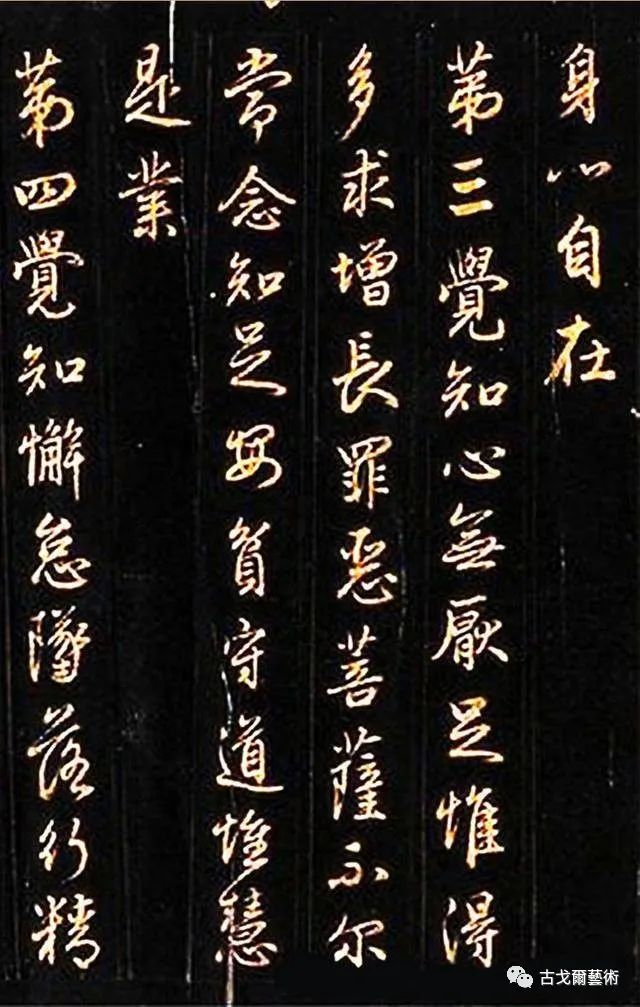 身心自在
第三覺知心無厭足惟得
多求增長罪惡菩薩不尔
常念知足安貧守道惟慧
是業
第四覺知懈怠墜落行精
古戈爾藝術